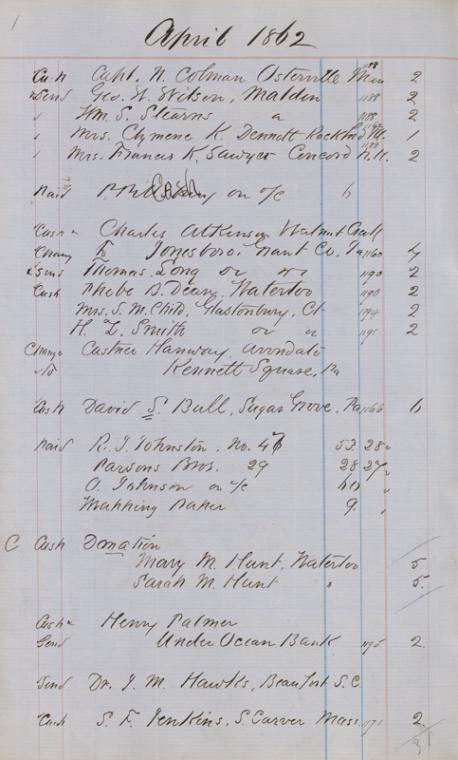 April 1862
Cash Capt. N. Colman Osterville Mass 1188 2
" Send Geo. W. Wilson, Malden 1188 2
" Wm. S. Stearns " 1188 2
" Mrs. Clymene K. Dennett Rockford Ill. 1
" Mrs. Francis K. Sawyer Concord N.H. 2
Paid on a/c 6
Cash " Charles Atkinson Walnut Creek
Change to Jonesboro, Grant Co. Ia 1160 4
& Send Thomas Long " " 1190 2
Cash Phebe B. Deavy, Waterloo 1190 2
Mrs. S. M. Child, Glastonbury, Ct 1194 2
H. L. Smith " " 1195 2
Change Castner Hanway, Avondale
Kennett Square, Pa
Cash David S. Bull, Sugar Grove, Pa 1166 6
Paid R. J. Johnston, No. 47 53 28 "
Parsons Bros. 29 28 27 "
O. Johnson on a/c "
Wrapping Paper 9 "
C Cash Donation
Mary M. Hunt, Waterloo 5
Sarah M. Hunt " 5.
Cash " Henry Palmer
Send Under Ocean Bank 1195 2
Send Dr. J. M. Hawks, Beaufort S.C.
Cash S. F. Jenkins, S. Carver Mass. 1171 2
31